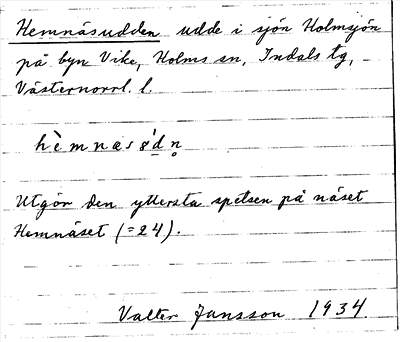 Hemnäsudden udde i sjön Holmsjön
på byn Vike, Holms sn, Indals tg,
Västernorrl. l.
hèmnæss'dn̥
Utgör den yttersta spetsen på näset
Hemnäset (=24).
Valter Jansson 1934